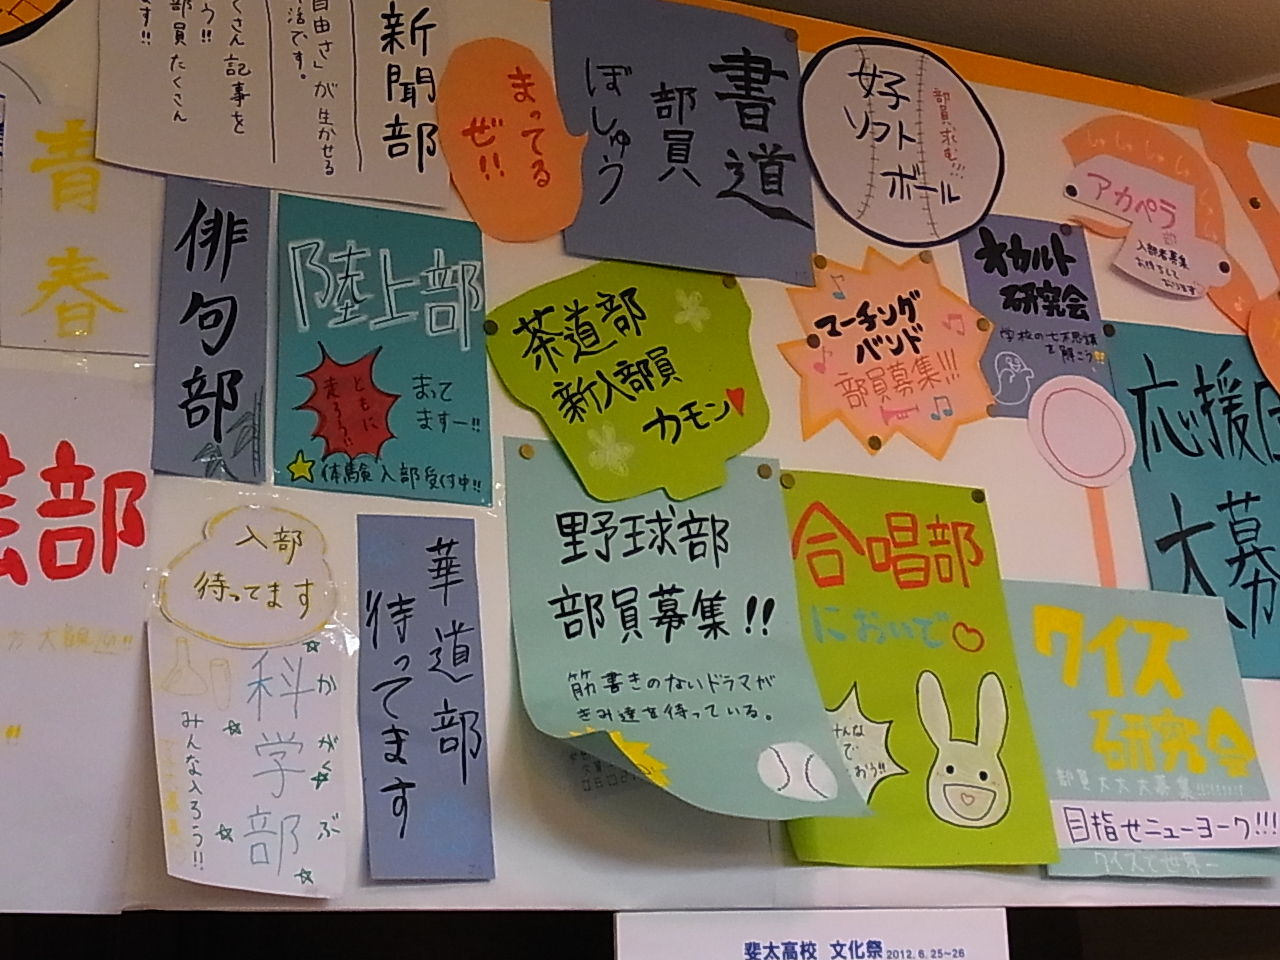 新聞部
自由さ」が生かせる
活です。
くさん記事を
う!!
部員たくさん
ます!!
まってる
ぜ!!
書道
部員
ぼしゅう
女子
ソフト
ボール
部員求む!!!
アカペラ
部
入部者募集
お待ちして
おります
青春
俳句部
陸上部
ともに
走ろう!!
まって
ますー!!
体験入部受付中!!
茶道部
新入部員
カモン
マーチング
バンド
部員募集!!!
オカルト
研究会
学校の七不思議
を解こう!!
応援団
大募
芸部
入部
待ってます
科学部
かがくぶ
みんな入ろう!!
華道部
待ってます
野球部
部員募集!!
筋書きのないドラマが
きみ達を待っている。
合唱部
においで
みんな
で
おう!!
クイズ
研究会
部員大大大募集!!!!!!!!
目指せニューヨーク!!!
クイズで世界一
斐太高校 文化祭 2012.6.25~26